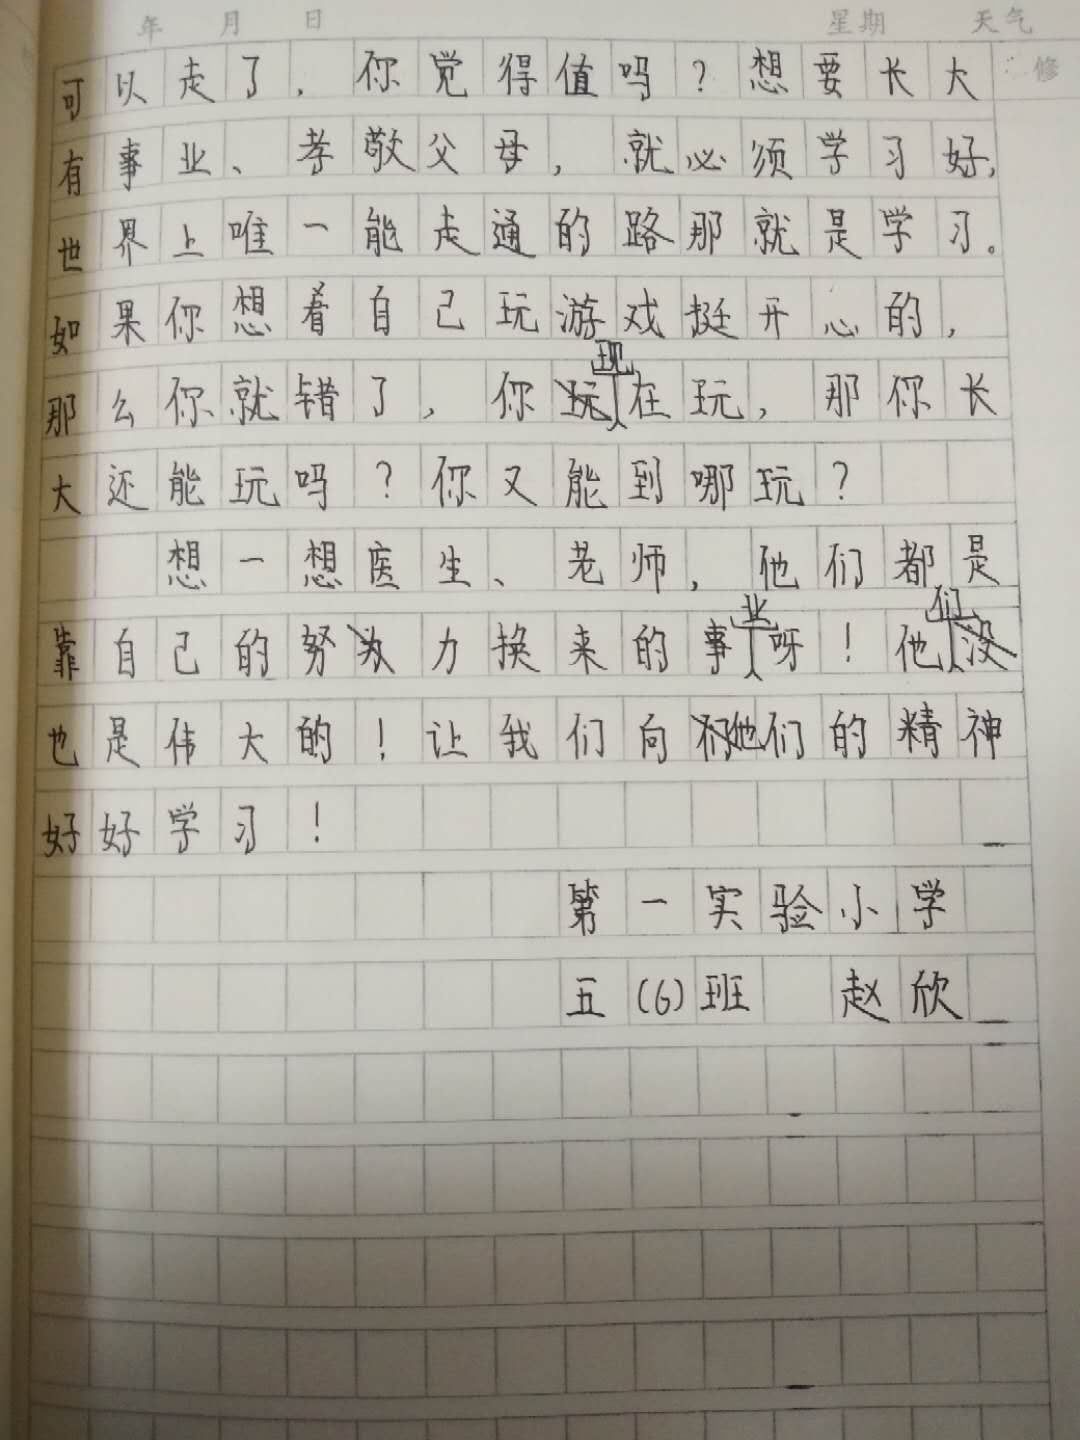 年 月 日 星期 天气
修
可以走了，你觉得值吗？想要长大
有事业、孝敬父母，就必须学习好，
世界上唯一能走通的路那就是学习。
如果你想着自己玩游戏挺开心的，
那么你就错了，你现在玩，那你长
大还能玩吗？你又能到哪玩？
想一想医生、老师，他们都是
靠自己的努力换来的事业呀！他们
也是伟大的！让我们向他们的精神
好好学习！
第一实验小学
五(6)班 赵欣